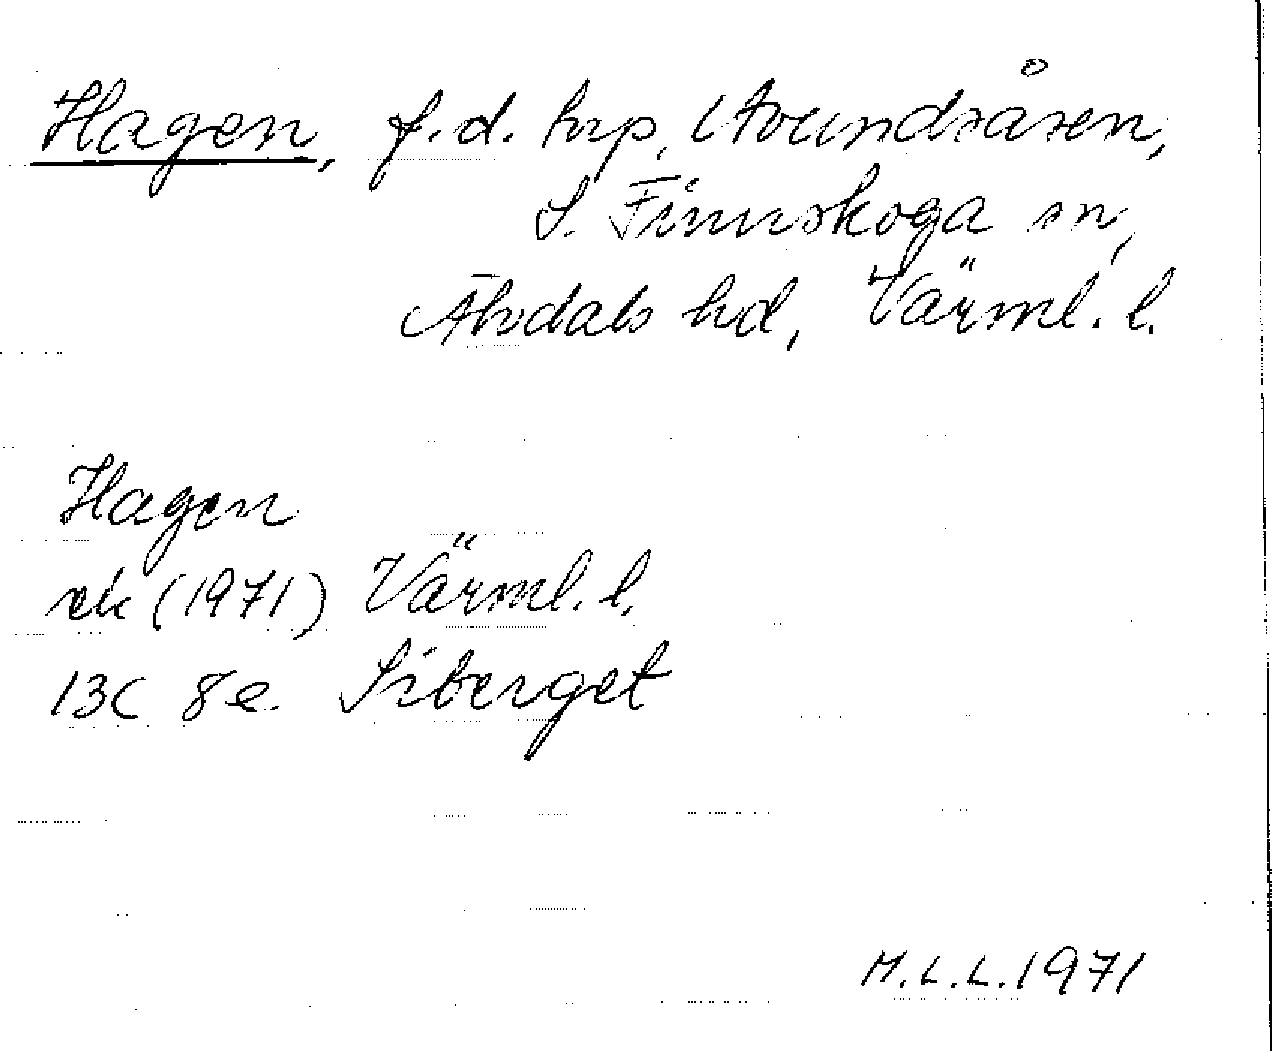 Hagen, f.d. trp, Avundsåsen,
S. Finnskoga sn,
Älvdals hd, Värml. l.
Hagen
ek (1971) Värml. l.
13C 8e Siberget
M.L.L. 1971